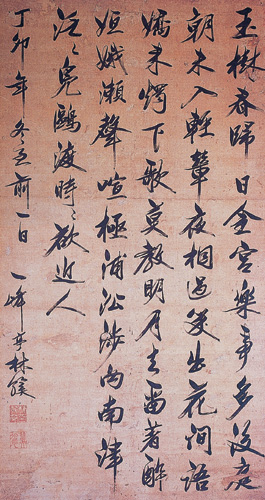 玉樹春歸日金宮樂事多後庭
朝未入輕輦夜相過笑出花间語
嬌来燭下歌莫教明月去留著醉
姮娥瀨聲喧極浦沿涉向南津
泛〻鳧鷗渡時〻欲近人
丁卯年冬至前一日 一峰林